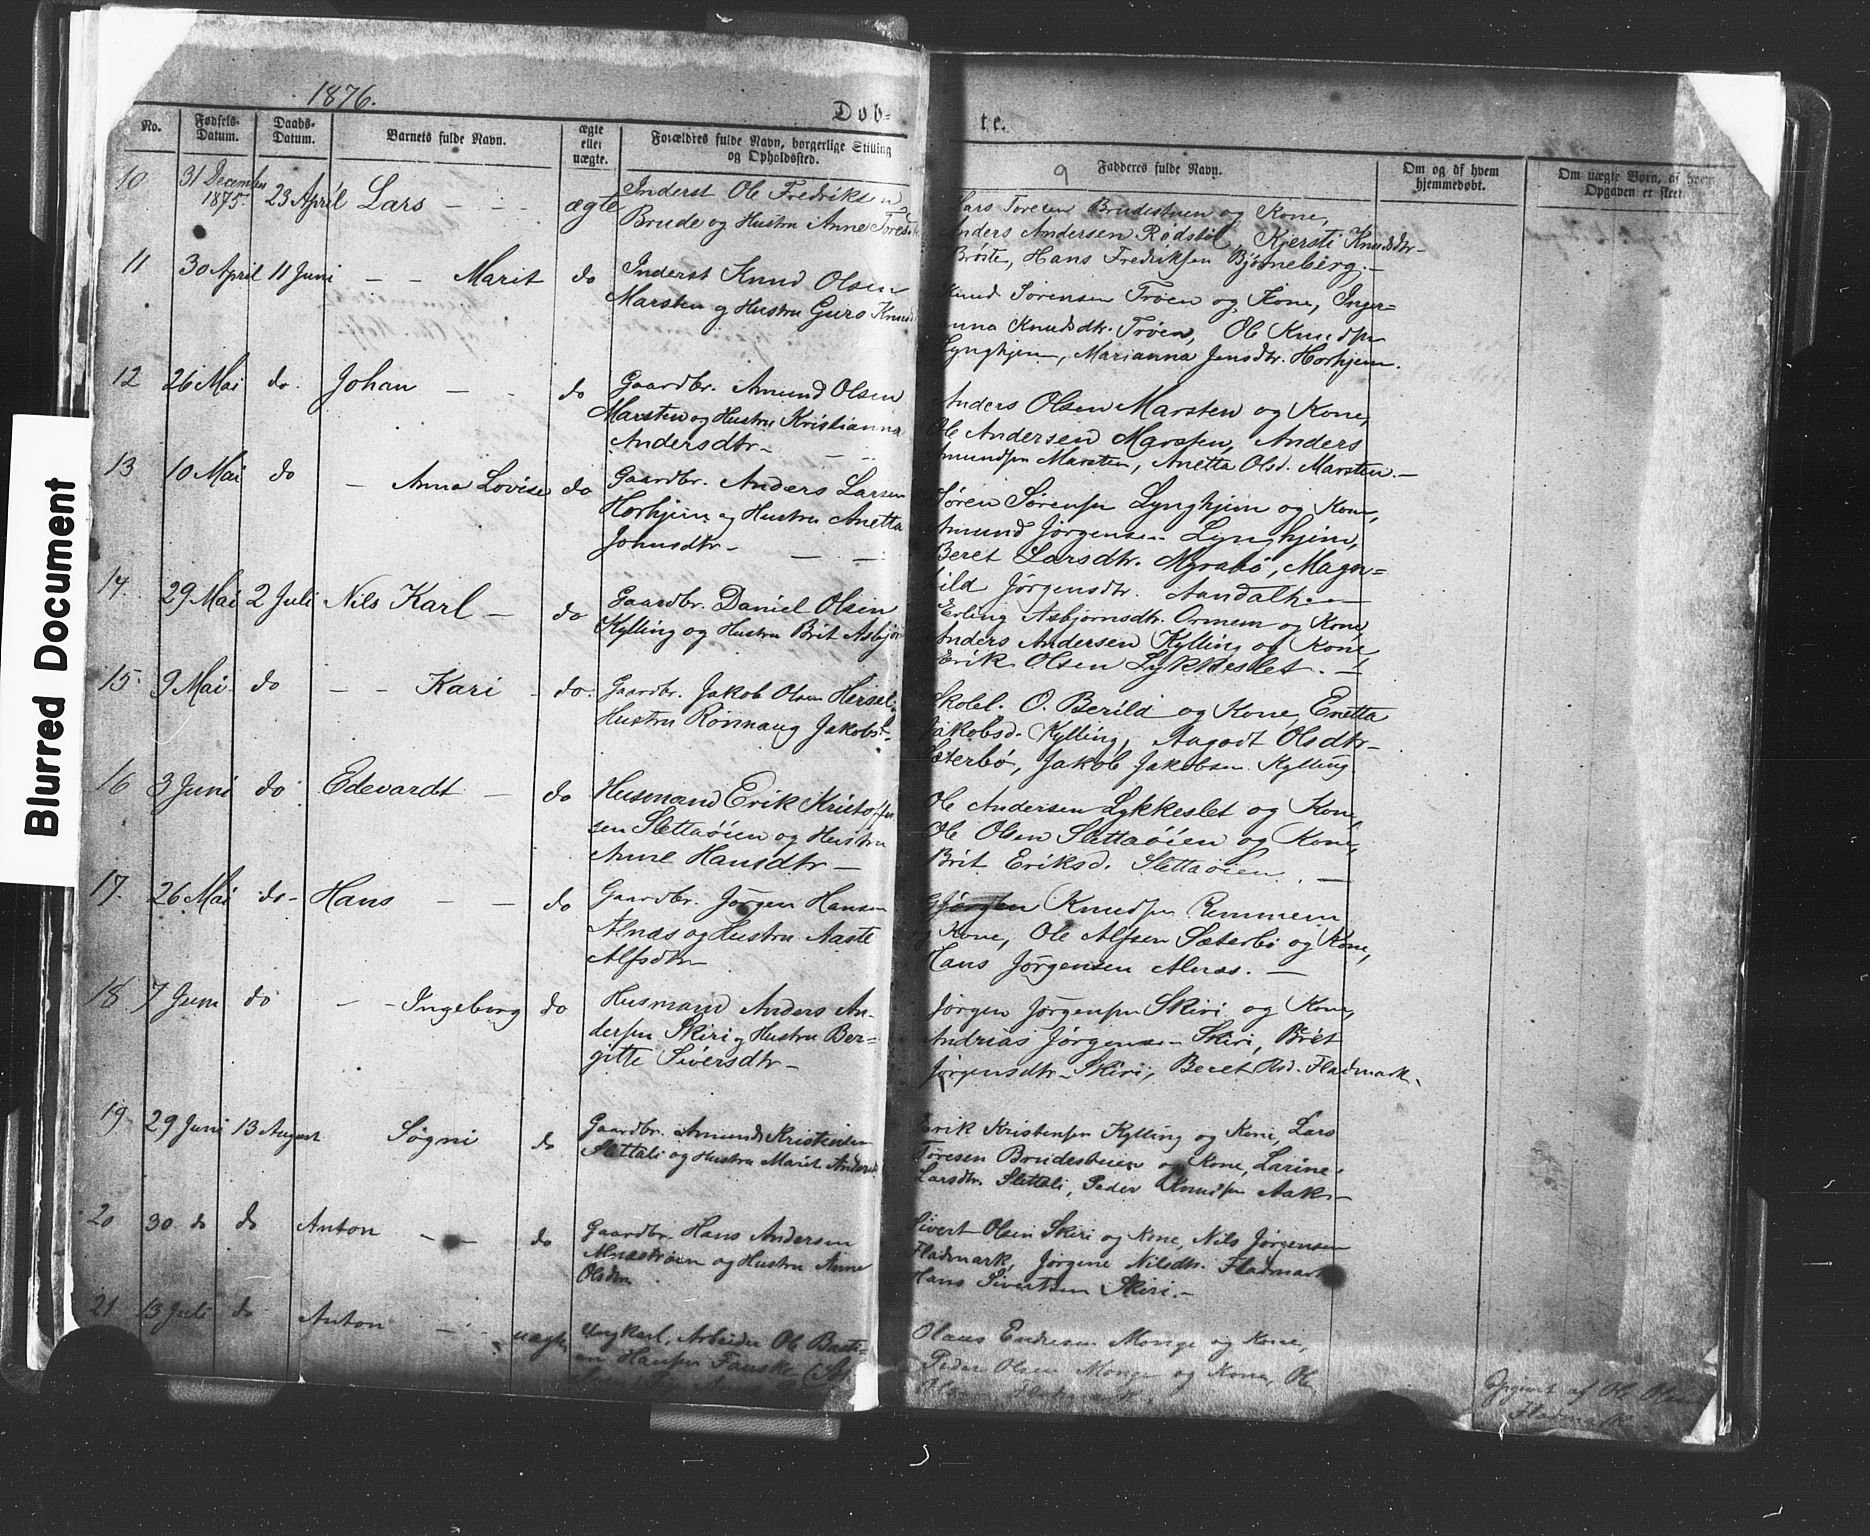 Blurred Document
1876.
Døb-
te.
9
No.
Fødsels-Datum.
Daabs-Datum.
Barnets fulde Navn.
ægte eller uægte.
Forældres fulde Navn, borgerlige Stilling og Opholdssted.
Fadderes fulde Navn.
Om og af hvem hjemmedøbt.
Om uægte Børn, af hvem Opgaven er skeet.
10 31 December 1875. 23 April Lars — — ægte
Inderst Ole Fredriksen
Brude og Hustru Anne Tores
Lars Toresen Brudestuen og Kone,
Anders Andersen Rødstøl, Kjersti Knudsdtr-
Brøste, Hans Fredriksen Bjørneberg.—
11 30 April 11 Juni — — Marit do
Inderst Knud Olsen
Marsten og Hustru Guro Knuds
Knud Sørensen Trøen og Kone, Inger-
anna Knudsdtr. Trøen, Ole Knudsen
Lynghjem, Marianna Jensdtr. Horhjem.
12 26 Mai do. Johan — - do
Gaardbr. Amund Olsen
Marsten og Hustru Kristianna
Andersdtr— — -
Anders Olsen Marsten og Kone,
Ole Andersen Marsten, Anders
Amundsen Marsten, Anetta Olsd. Marsten.—
13 10 Mai do — Anna Lovise do
Gaardbr. Anders Larsen
Horhjem og Hustru Anetta
Johnsdtr— — —
Søren Sørensen Lynghjem og Kone,
Amund Jørgensen Lynghjem,
Beret Larsdtr. Myrabø, Magn=
hild Jørgensdtr. Aandalh.—
14. 29 Mai 2 Juli Nils Karl — do
Gaardbr. Daniel Olsen
Kylling og Hustru Brit Asbjør
Erling Asbjørnsdtr. Ormem og Kone,
Anders Andersen Kylling og Kone
Erik Olsen Lykkeslet. —
15. 9 Mai do — — Kari - do.
Gaardbr. Jakob Olsen Hersel.
Hustru Rønnaug Jakobst-
Skolel. O. Berild og Kone, Enetta
Jakobsd. Kylling, Aagodt Olsdtr-
Sæterbø, Jakob Jakobsen Kylling
16 3 Juni do. Edevardt — do
Husmand Erik Kristoffer
sen Slettaøien og Hustru
Anne Hansdtr —
Ole Andersen Lykkeslet og Kone,
Ole Olsen Slettaøien og Kone,
Brit Eriksd. Slettaøien. —
17. 26 Mai do- Hans — — do
Gaardbr. Jørgen Hansen
Alnæs og Hustru Aaste
Alfsdtr—
Knudsen Remmem
og Kone, Ole Alfsen Sæterbø og Kone,
Hans Jørgensen Alnæs. —
18. 7 Juni do — — Ingeborg do
Husmand Anders An-
dersen Skiri og Hustru Ber=
gitte Siversdtr—
Jørgen Jørgensen Skiri og Kone,
Andrias Jørgensen Skiri, Brit
Jørgensdtr— Skiri, Beret Olsd. Fladmark.
19 29 Juni 13 August Søgni do
Gaardbr. Amund Kristensen
Slettali og Hustru Marit Andersd
Erik Kristensen Kylling og Kone, Lars
Toresen Brudestuen og Kone, Larine
Larsdtr. Slettali, Peder Knudsen Aak—
20 30 do do Anton — — do
Gaardbr. Hans Andersen
Alnæstrøen og Hustru Anne
Olsdtr
Sivert Olsen Skiri og Kone, Nils Jørgensen
Fladmark, Jørgine Nilsdtr. Fladmark
Hans Sivertsen Skiri.—
21. 13 Juli do Anton — - uægte
Ungkarl, Arbeider Ole Basti-
an Hansen Fauske
Olaus Endresen Monge og Kone,
Peder Olsen Monge og Kone, Ole
Opgivet af Ole Olsen
Fladmark